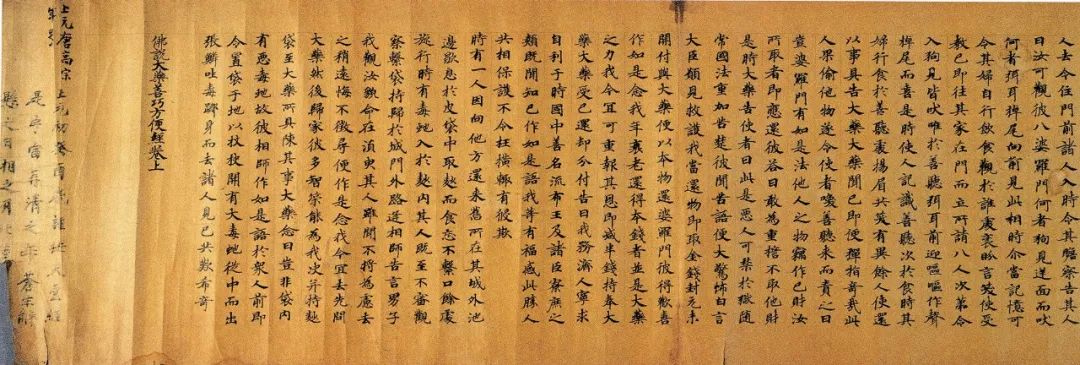 人去令住門前諸人入時令其瞻察告其人
曰汝可觀彼八婆羅門何者狗見逆面而吠
何者弭耳掉尾向前見此相時尒當記憶可
令其婦自行飲食觀於誰處柔眄言笑使受
教已即往其家在門而立所請八人次第令
入狗見皆吠唯於善聽弭耳前迎嘔嘔作聲
掉尾而喜是時使人記識善聽次於食時其
婦行食於善聽處揚眉共笑有異餘人使還
以事具告大藥大藥聞已即便彈指奇哉此
人果偷他物遂令使者喚善聽來而責之曰
豈婆羅門有如是法他人之物竊作己財汝
所取者即應還彼答曰敢為重擔不取他財
是時大藥告使者曰此是惡人可禁於獄隨
常國法重加苦楚彼聞告語便大驚怖白言
大臣願見救護我當還物即取金錢封元来
開付與大藥便以本物還婆羅門彼得歡喜
作如是念我年衰老還得本錢者並是大藥
之力我今宜可重報其恩即減半錢持奉大
藥大藥受已還却分付告曰我務濟人寧求
自利于時國中善名流布王及諸臣寮庶之
類既聞知已作如是語我等有福感此勝人
共相保護不令枉橫輒有侵欺
時有一人因向他方還来舊所在其城外池
邊歇息於皮袋中取麨而食忘不繫口餘處
旋行時有毒蛇入於麨內其人既至不審觀
察繫袋持歸於城門外路逢相師告言男子
我觀汝貌命在須臾其人雖聞不將為慮去
之稍遠悔不徵尋便作是念我今宜去先問
大藥然後歸家彼多智策能為我決并持麨
袋至大藥所具陳其事大藥念曰豈非袋內
有惡毒蛇故彼相師作如是語於衆人前即
令置袋于地以杖撥開有大毒蛇從中而出
張鱗吐毒身而去諸人見已共歎希奇
佛說大藥善巧方便經卷上
上元唐高宗